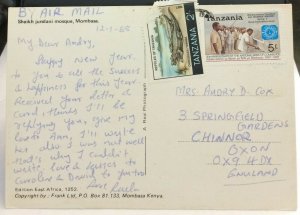 BY AIR MAIL
Sheikh jundani mosque, Mombasa.
12-1-88
My Dear Audry,
Happy New Year
to you & all the success
& happiness for this year
Received your letter &
Card thanks I'll be
replying you, give my
love to Amy, I'll write
but also I was not well
that's why I couldn't
write love & kisses to
Caroline &
TANZANIA
2/-
Tanzania
5/-
MRS AUDRY D. COX
3 SPRINGFIELD
GARDENS
CHINNOR
OXON
OX9 4DX
ENGLAND
A Real Photograph
Eastern East Africa, 1252.
Copyright by - Frank Ltd, P.O. BOX Mombasa Kenya.